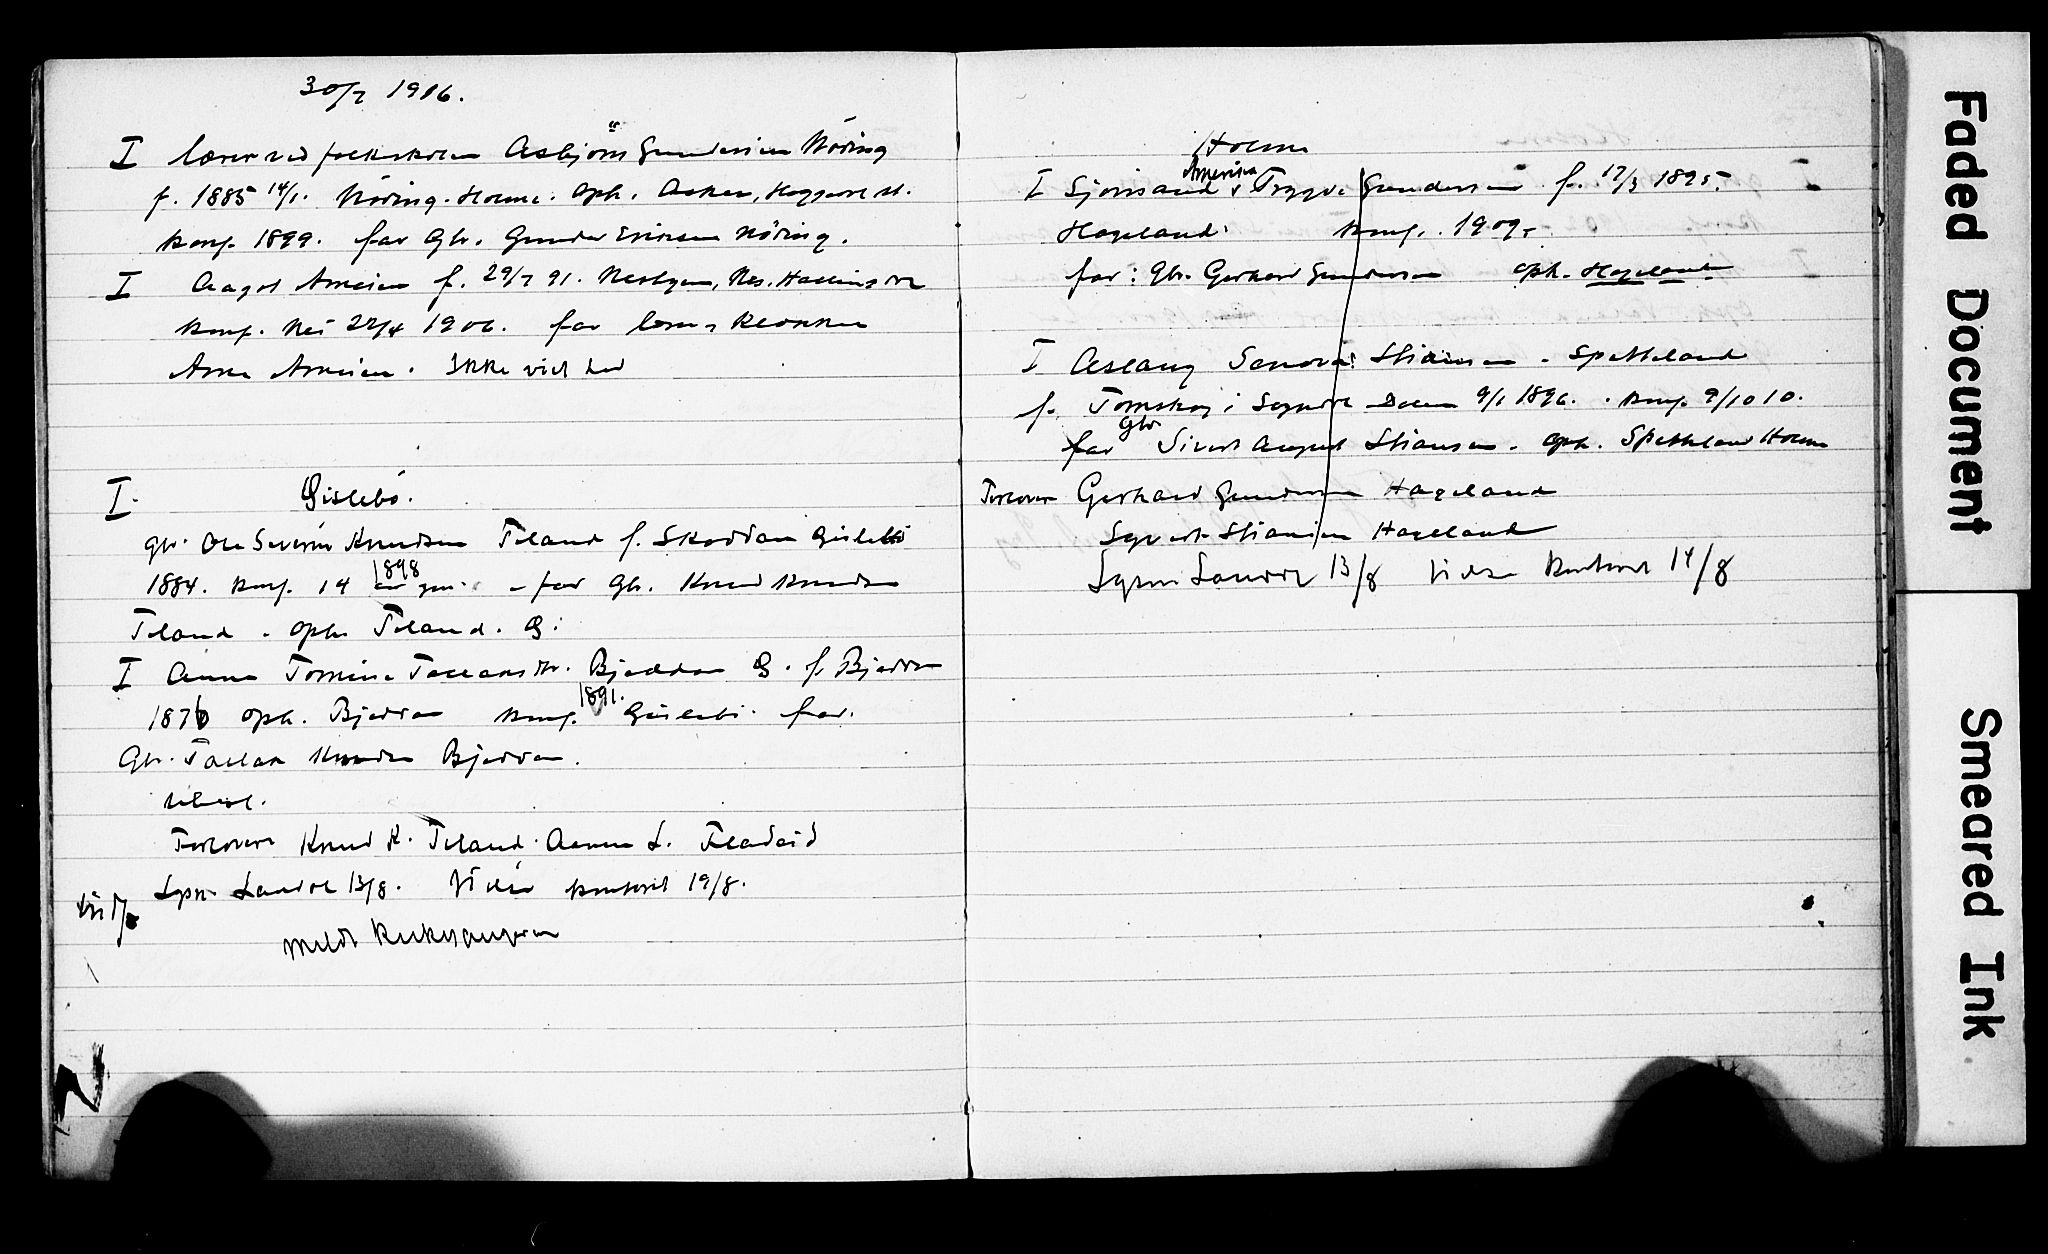 30/7 1916.
I lærer ved folkeskolen Asbjörn Gundersen Nöring
f. 1885 14/1. Nöring. Holme. oph. Asker,
konf. 1899. far Gbr. Gunder Eriksen Nöring.
I Aagot Arnesen f. 29/7 91. Nes. Hallingdal
konf. Nes 22/4 1906. far lærer, klokker
Arne Arnesen. Ikke viet her
I. Gislebö.
gbr. Ole Severin Knudsen Teland f. Skoddan Gislebö
1884. konf. 14 1898 - far Gbr. Knud Knudsen
Teland. oph. Teland. G.
I Anna Tomine Tallaksdtr. Bjaddan G. f. Bjaddan
1876 oph. Bjaddan konf. 1891. Gislebö. far.
Gbr. Tallak Knudsen Bjaddan.
Forlovere Knud K. Teland. L.
Lysn. 13/8. Vidne kontoret 19/8.
meldt kirkesangeren
Holme
I America Trygve Gundersen f. 17/3 1895.
Hageland. konf. 1909.
far: Gbr. Gerhard Gundersen oph. Hageland
I Aslaug Stiansen - Spetteland
f. i Søndre 9/1 1896. konf. 9/10 10.
far Gbr. Sivert August Stiansen. oph. Spetteland Holme
Forlover Gerhard Gundersen Hageland
Stiansen Hageland
13/8 Vidne kontoret 14/8
Faded Document
Smeared Ink